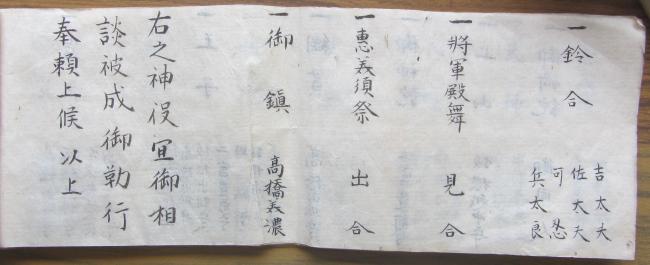 一鈴合
吉太夫
佐太夫
可忍
兵太良
一將軍殿舞 見合
一惠義須祭 出合
一御鎭 高橋義濃
右之神役宜御相
談被成御勤行
奉頼上候 以上